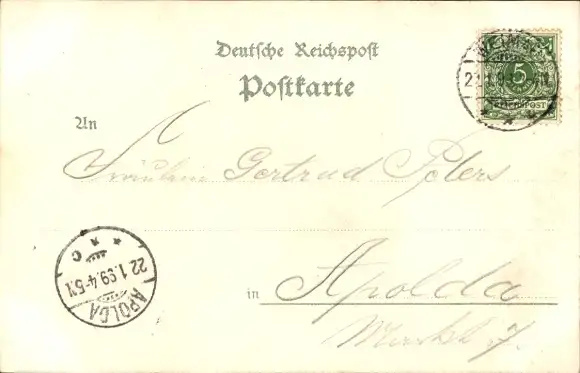 Deutsche Reichspost
Postkarte
WEIMAR
5
REICHSPOST
An
Fräulein Gertrud Peters
in Apolda
Markt 7.
APOLDA
22.1.99.4-5N.
C